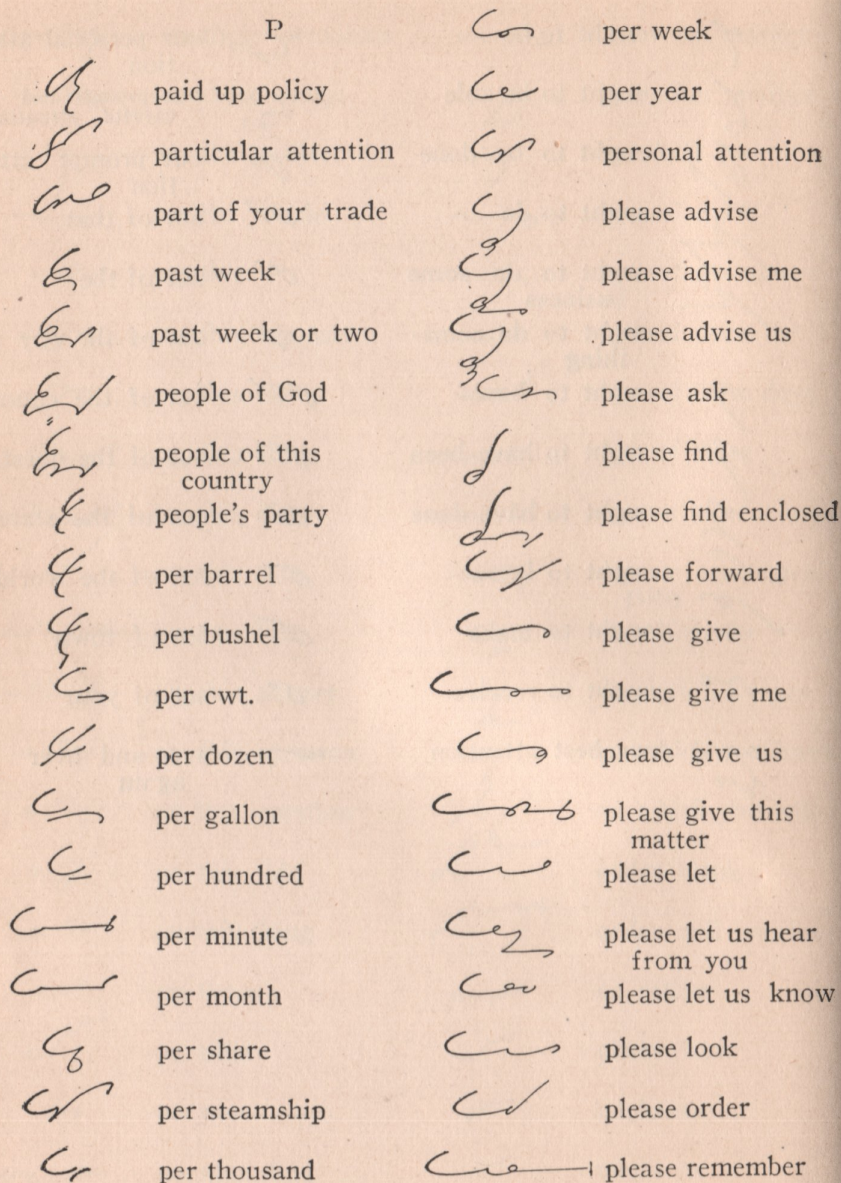 P
paid up policy
particular attention
part of your trade
past week
past week or two
people of God
people of this
country
people's party
per barrel
per bushel
per cwt.
per dozen
per gallon
per hundred
per minute
per month
per share
per steamship
per thousand
per week
per year
personal attention
please advise
please advise me
please advise us
please ask
please find
please find enclosed
please forward
please give
please give me
please give us
please give this
matter
please let
please let us hear
from you
please let us know
please look
please order
please remember